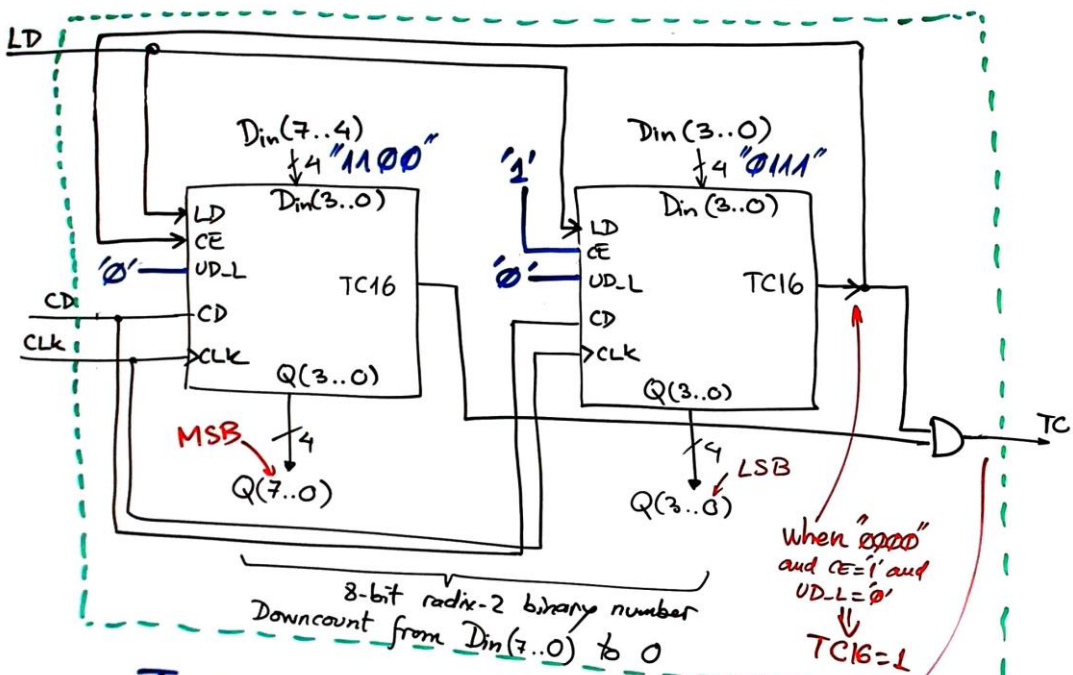 LD
Din(7..4)
4 "1100"
Din(3..0)
LD
CE
'0'
UD_L
TC16
CD
CD
CLK
CLK
Q(3..0)
MSB
4
Q(7..0)
Din(3..0)
4 "0111"
'1'
Din(3..0)
LD
CE
'0'
UD_L
TC16
CD
CLK
Q(3..0)
4
LSB
Q(3..0)
TC
when "0000"
and CE='1' and
UD_L='0'
⇓
TC16=1
8-bit radix-2 binary number
Downcount from Din(7..0) to 0